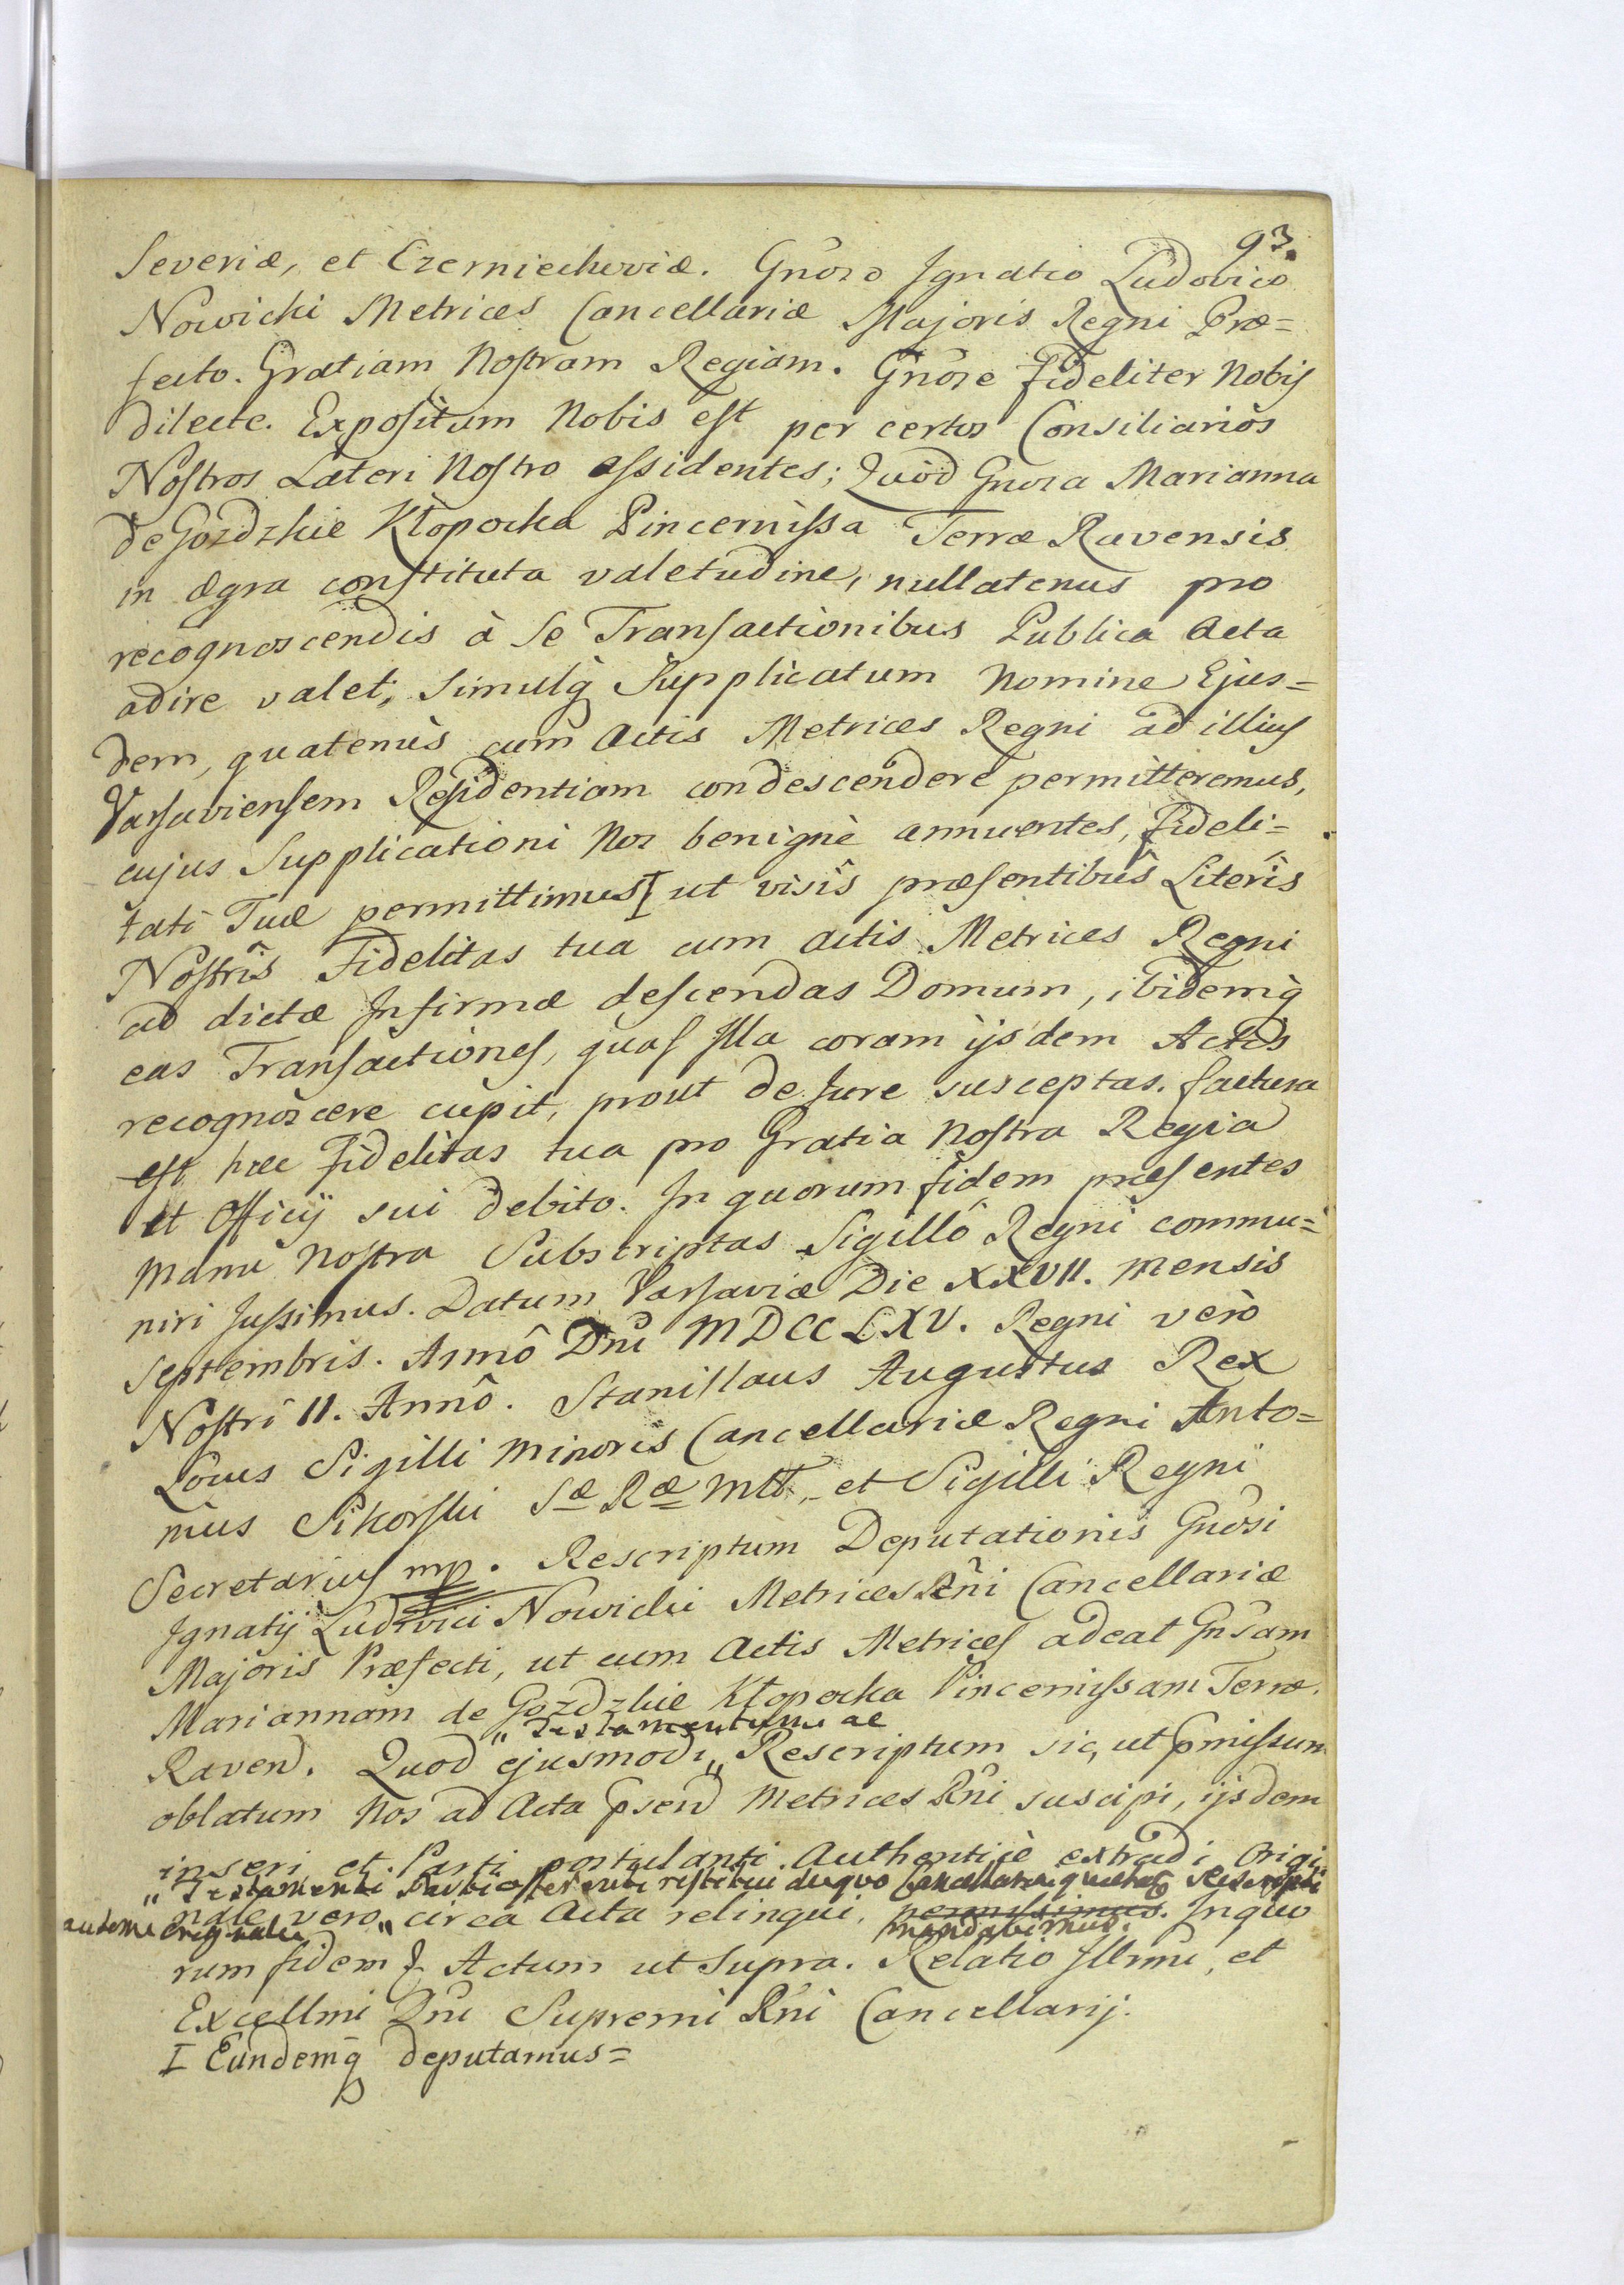 93.
Severiæ, et Czerniechoviæ. Gnoso Ignatio Ludovico
Nowicki Metrices Cancellariæ Majoris Regni Præ=
fecto. Gratiam Nostram Regiam. Gnose Fideliter Nobis
dilecte. Expositum Nobis est per certos Consiliarios
Nostros Lateri Nostro assidentes; Quòd Gnosa Marianna
de Gozdzkie Kłopocka Pincernissa Terræ Ravensis
in ægra constituta valetudine, nullatenus pro
recognoscendis à Se Transactionibus Publica Acta
adire valet; Simulq̃ Supplicatum Nomine Ejus=
dem, quatenùs cum Actis Metrices Regni ad illius
Varsaviensem Residentiam condescendere permitteremus,
cujus Supplicationi Nos benignè annuentes, Fideli=
tati Tuæ permittimus I ut visîs præsentibûs Literîs
Nostrîs Fidelitas tua cum actis Metrices Regni
ad dictæ Infirmæ descendas Domum, ibidemq̃
eas Transactiones, quas Illa coram ijsdem Actis
recognoscere cupit, prout de Jure susceptas. factura
est hæc Fidelitas tua pro Gratia Nostra Regia
et Officij sui debito. In quorum fidem præsentes
Manu Nostra Subscriptas Sigillô Regni commu=
niri Jussimus. Datum Varsaviæ Die XXVII. Mensis
Septembris. Annô Dni MDCCLXV. Regni verò
Nostri II. Annô. Stanislaus Augustus Rex
Locus Sigilli Minoris Cancellariæ Regni Anto=
nius Sikorski Sæ Ræ Mtt, et Sigilli Regni
Secretarius mp. Rescriptum Deputationis Gnosi
Ignatij Ludovici Nowicki Metrices Rñi Cancellariæ
Majoris Præfecti, ut cum Actis Metrices adeat Gnsam
Mariannam de Gozdzkie Kłopocka Pincernissam Terræ
" Testamentum ac
Raven. Quod ejusmodi " Rescriptum sic, ut pmissum
oblatum Nos ad Acta psen Metrices Rñi suscipi, ijsdem
inseri et Parti postulanti Authenticè extradi Origi
" Testamenti Parti offerenti restitui de quo Cancellaria quietat Rescripti
nale vero " circa Acta relinqui, permissimus. In quo
autem originale mandavimus.
rum fidem & Actum ut Supra. Relatio Illrmi, et
Excellmi Dni Supremi Rñi Cancellarij.
I Eundemq̃ deputamus=